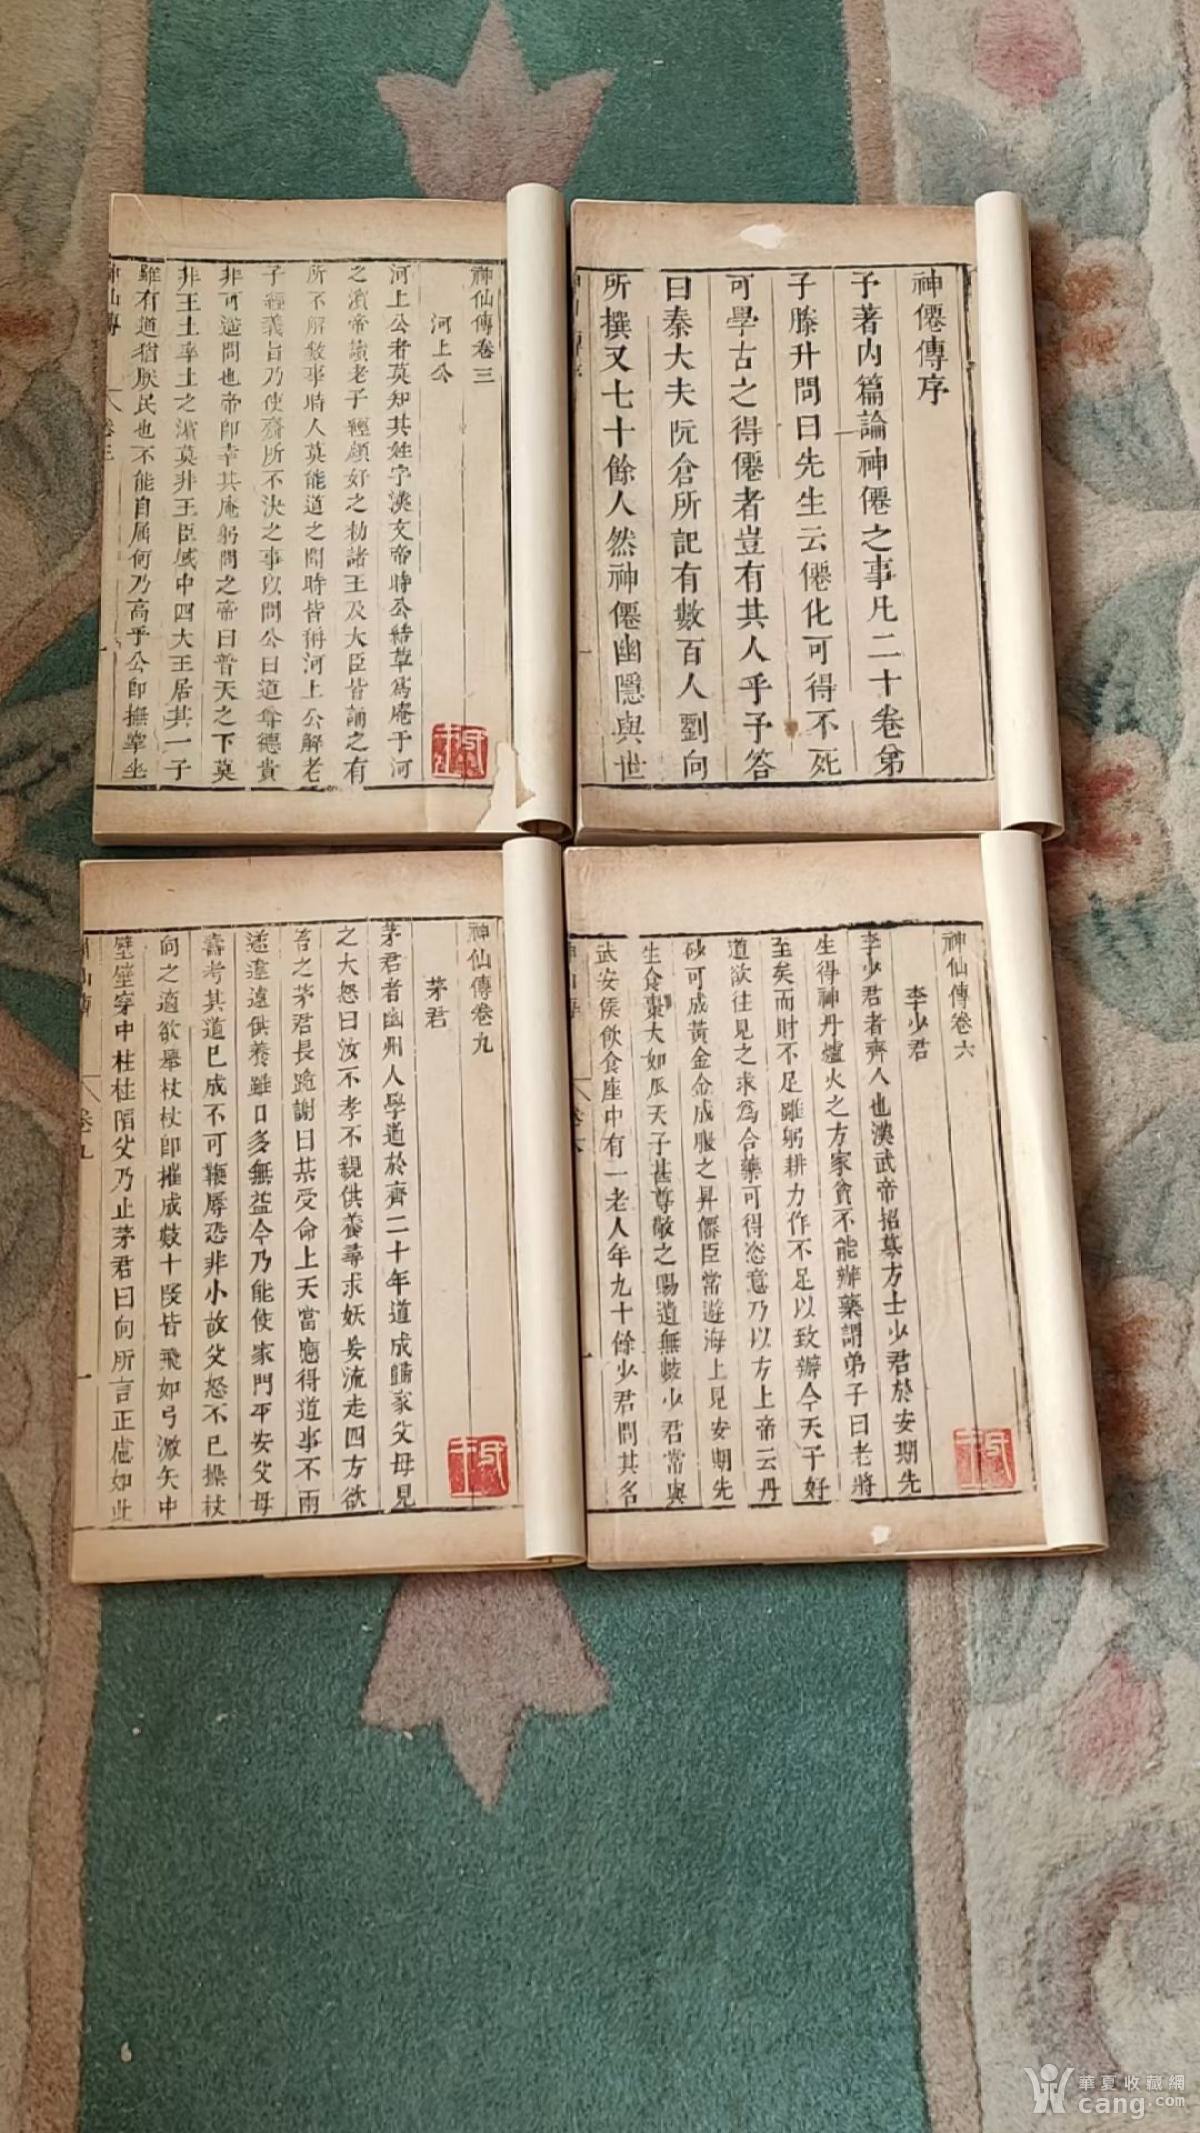 神僊傳序
予著內篇論神僊之事凡二十卷弟
子滕升問曰先生云僊化可得不死
可學古之得僊者豈有其人乎予答
曰秦大夫阮倉所記有數百人劉向
所撰又七十餘人然神僊幽隱與世
神仙傳卷三
河上公
河上公者莫知其姓字漢文帝時公結草爲庵于河
之濱帝讀老子經頗好之勑諸王及大臣皆誦之有
所不解數事時人莫能道之聞時皆稱河上公解老
子經義旨乃使齎所不決之事以問公曰道尊德貴
非可遙問也帝卽幸其庵躬問之帝曰普天之下莫
非王土率土之濱莫非王臣域中四大王居其一子
雖有道猶朕民也不能自屈何乃高乎公卽撫掌坐
神仙傳
卷三
一
神仙傳卷六
李少君
李少君者齊人也漢武帝招募方士少君於安期先
生得神丹爐火之方家貧不能辦藥謂弟子曰老將
至矣而財不足雖躬耕力作不足以致辦今天子好
道欲往見之求爲合藥可得恣意乃以方上帝云丹
砂可成黃金金成服之昇僊臣常遊海上見安期先
生食棗大如瓜天子甚尊敬之賜遺無數少君常與
武安侯飲食座中有一老人年九十餘少君問其名
卷六
一
神仙傳卷九
茅君
茅君者幽州人學道於齊二十年道成歸家父母見
之大怒曰汝不孝不親供養尋求妖妄流走四方欲
笞之茅君長跪謝曰某受命上天當應得道事不兩
遂違遠供養雖日多無益今乃能使家門平安父母
壽考其道已成不可鞭辱恐非小故父怒不已操杖
向之適欲舉杖杖卽摧成數十段皆飛如弓激矢中
壁壁穿中柱柱陷父乃止茅君曰向所言正慮如此
卷九
一
華夏收藏網
cang.com